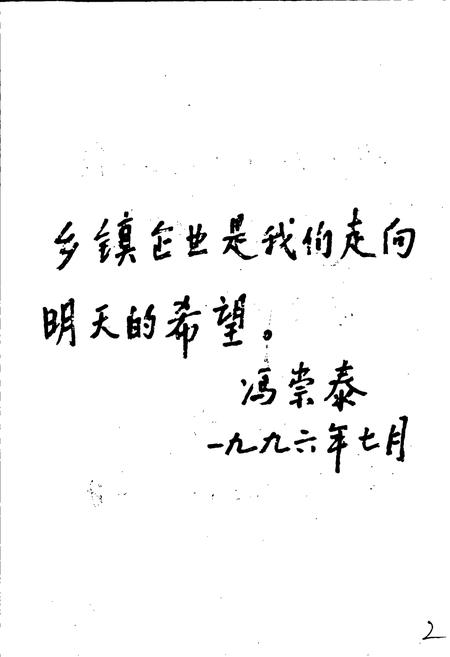 乡镇企业是我们走向
明天的希望。
冯崇泰
一九九六年七月
2